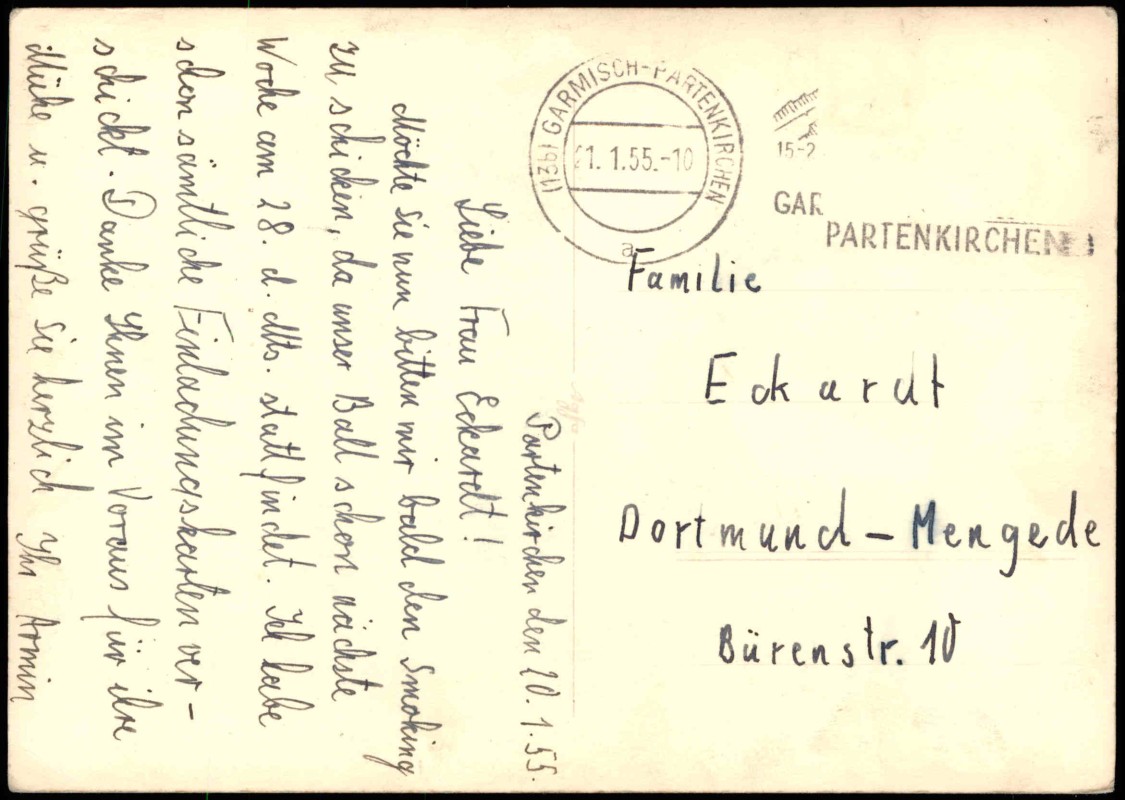 Partenkirchen den 20.1.55.
Liebe Frau Eckardt!
Möchte Sie nun bitten mir bald den Smoking
zu schicken, da unser Ball schon nächste
Woche am 28. d. Mts. stattfindet. Ich habe
schon sämtliche Einladungskarten ver-
schickt. Danke Ihnen im Voraus für ihre
Mühe u. grüße Sie herzlich Ihr Armin
(13b) GARMISCH-PARTENKIRCHEN
21. 1.55.-10
a
15-2
GAR
PARTENKIRCHEN
Familie
Eckardt
Dortmund - Mengede
Bürenstr. 10